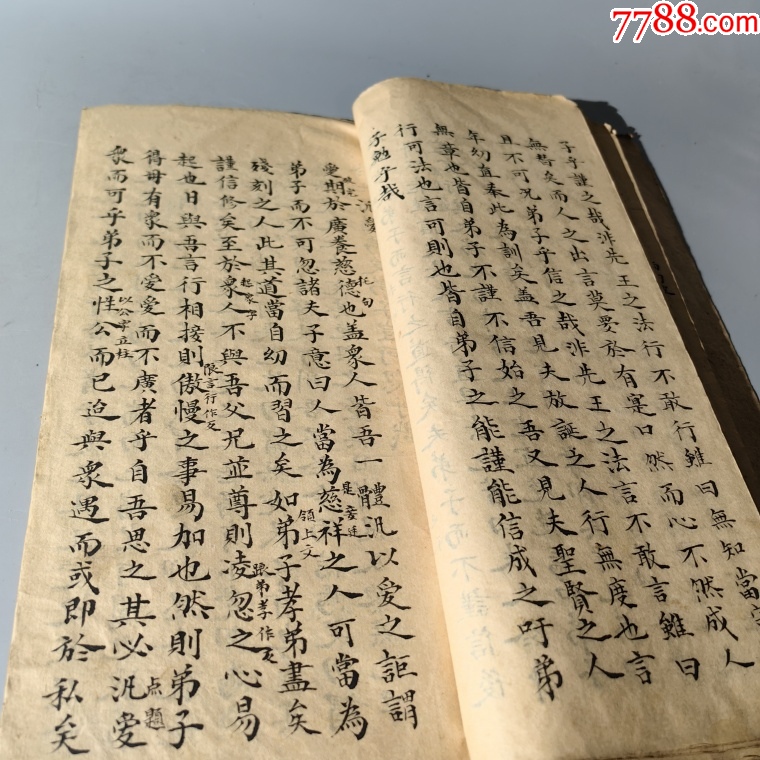 7788.com
子乎謹之哉非先王之法行不敢行雖曰無知當
無替矣而人之出言莫要於有寔口然而心不然成人
且不可況弟子乎信之哉非先王之法言不敢言雖曰
年幼直奉此為訓矣盖吾見夫放誕之人行無度也言
無章也皆自弟子不謹不信始之吾又見夫聖賢之人
行可法也言可則也皆自弟子之能謹能信成之吁弟
子勉乎哉
汎愛
愛期於廣養慈德也盖眾人皆吾一體汎以愛之詎謂
弟子而不可忽諸夫子意曰人當為慈祥之人可當為
殘刻之人此其道當自幼而習之矣如弟子孝弟盡矣
謹信修矣至於眾人不與吾父兄並尊則凌忽之心易
起也日與吾言行相接則傲慢之事易加也然則弟子
得毋有眾而不愛愛而不廣者乎自吾思之其必汎愛
眾而可乎弟子之性公而已迫與眾遇而或即於私矣
領上文
跟弟孝作反
跟言行作反
点題
以公字立柱